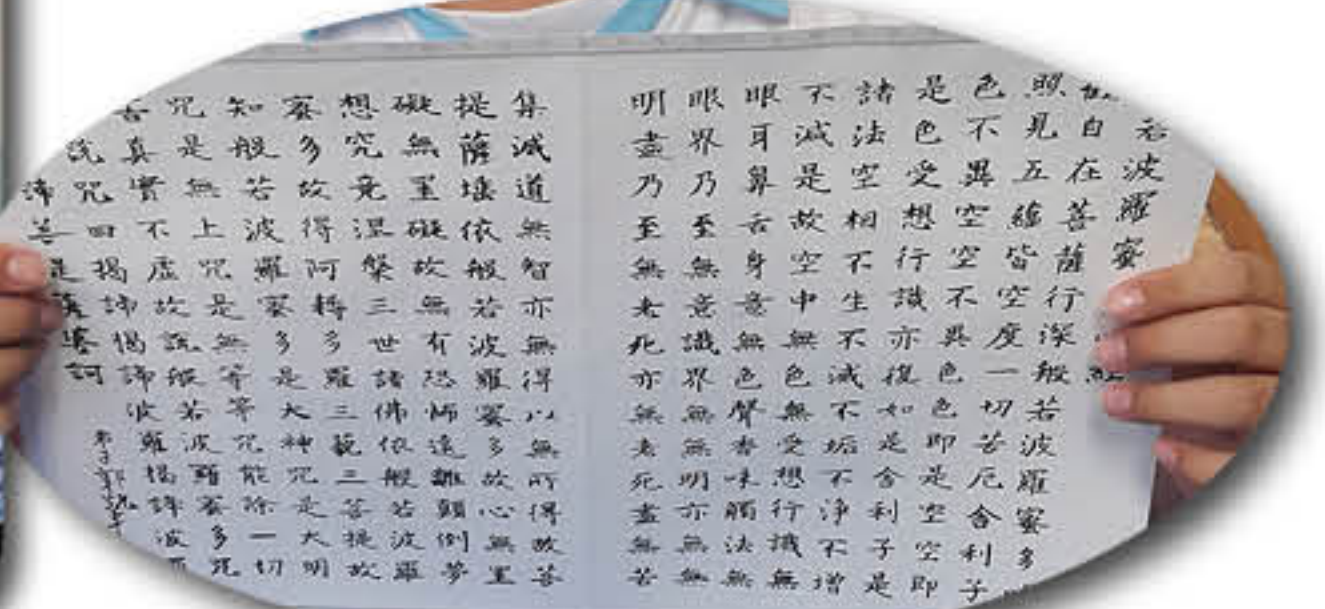 若波羅蜜
觀自在菩薩行深般若波羅蜜多
照見五蘊皆空度一切苦厄舍利子
色不異空空不異色色即是空空即
是色受想行識亦復如是舍利子是
諸法空相不生不滅不垢不淨不增
不減是故空中無色無受想行識無
眼耳鼻舌身意無色聲香味觸法無
眼界乃至無意識界無無明亦無無
明盡乃至無老死亦無老死盡無苦
集滅道無智亦無得以無所得故菩
提薩埵依般若波羅蜜多故心無罣
礙無罣礙故無有恐怖遠離顛倒夢
想究竟涅槃三世諸佛依般若波羅
蜜多故得阿耨多羅三藐三菩提故
知般若波羅蜜多是大神咒是大明
咒是無上咒是無等等咒能除一切
苦真實不虛故說般若波羅蜜多咒
說咒曰揭諦揭諦波羅揭諦波
諦菩提薩婆訶
弟子郭